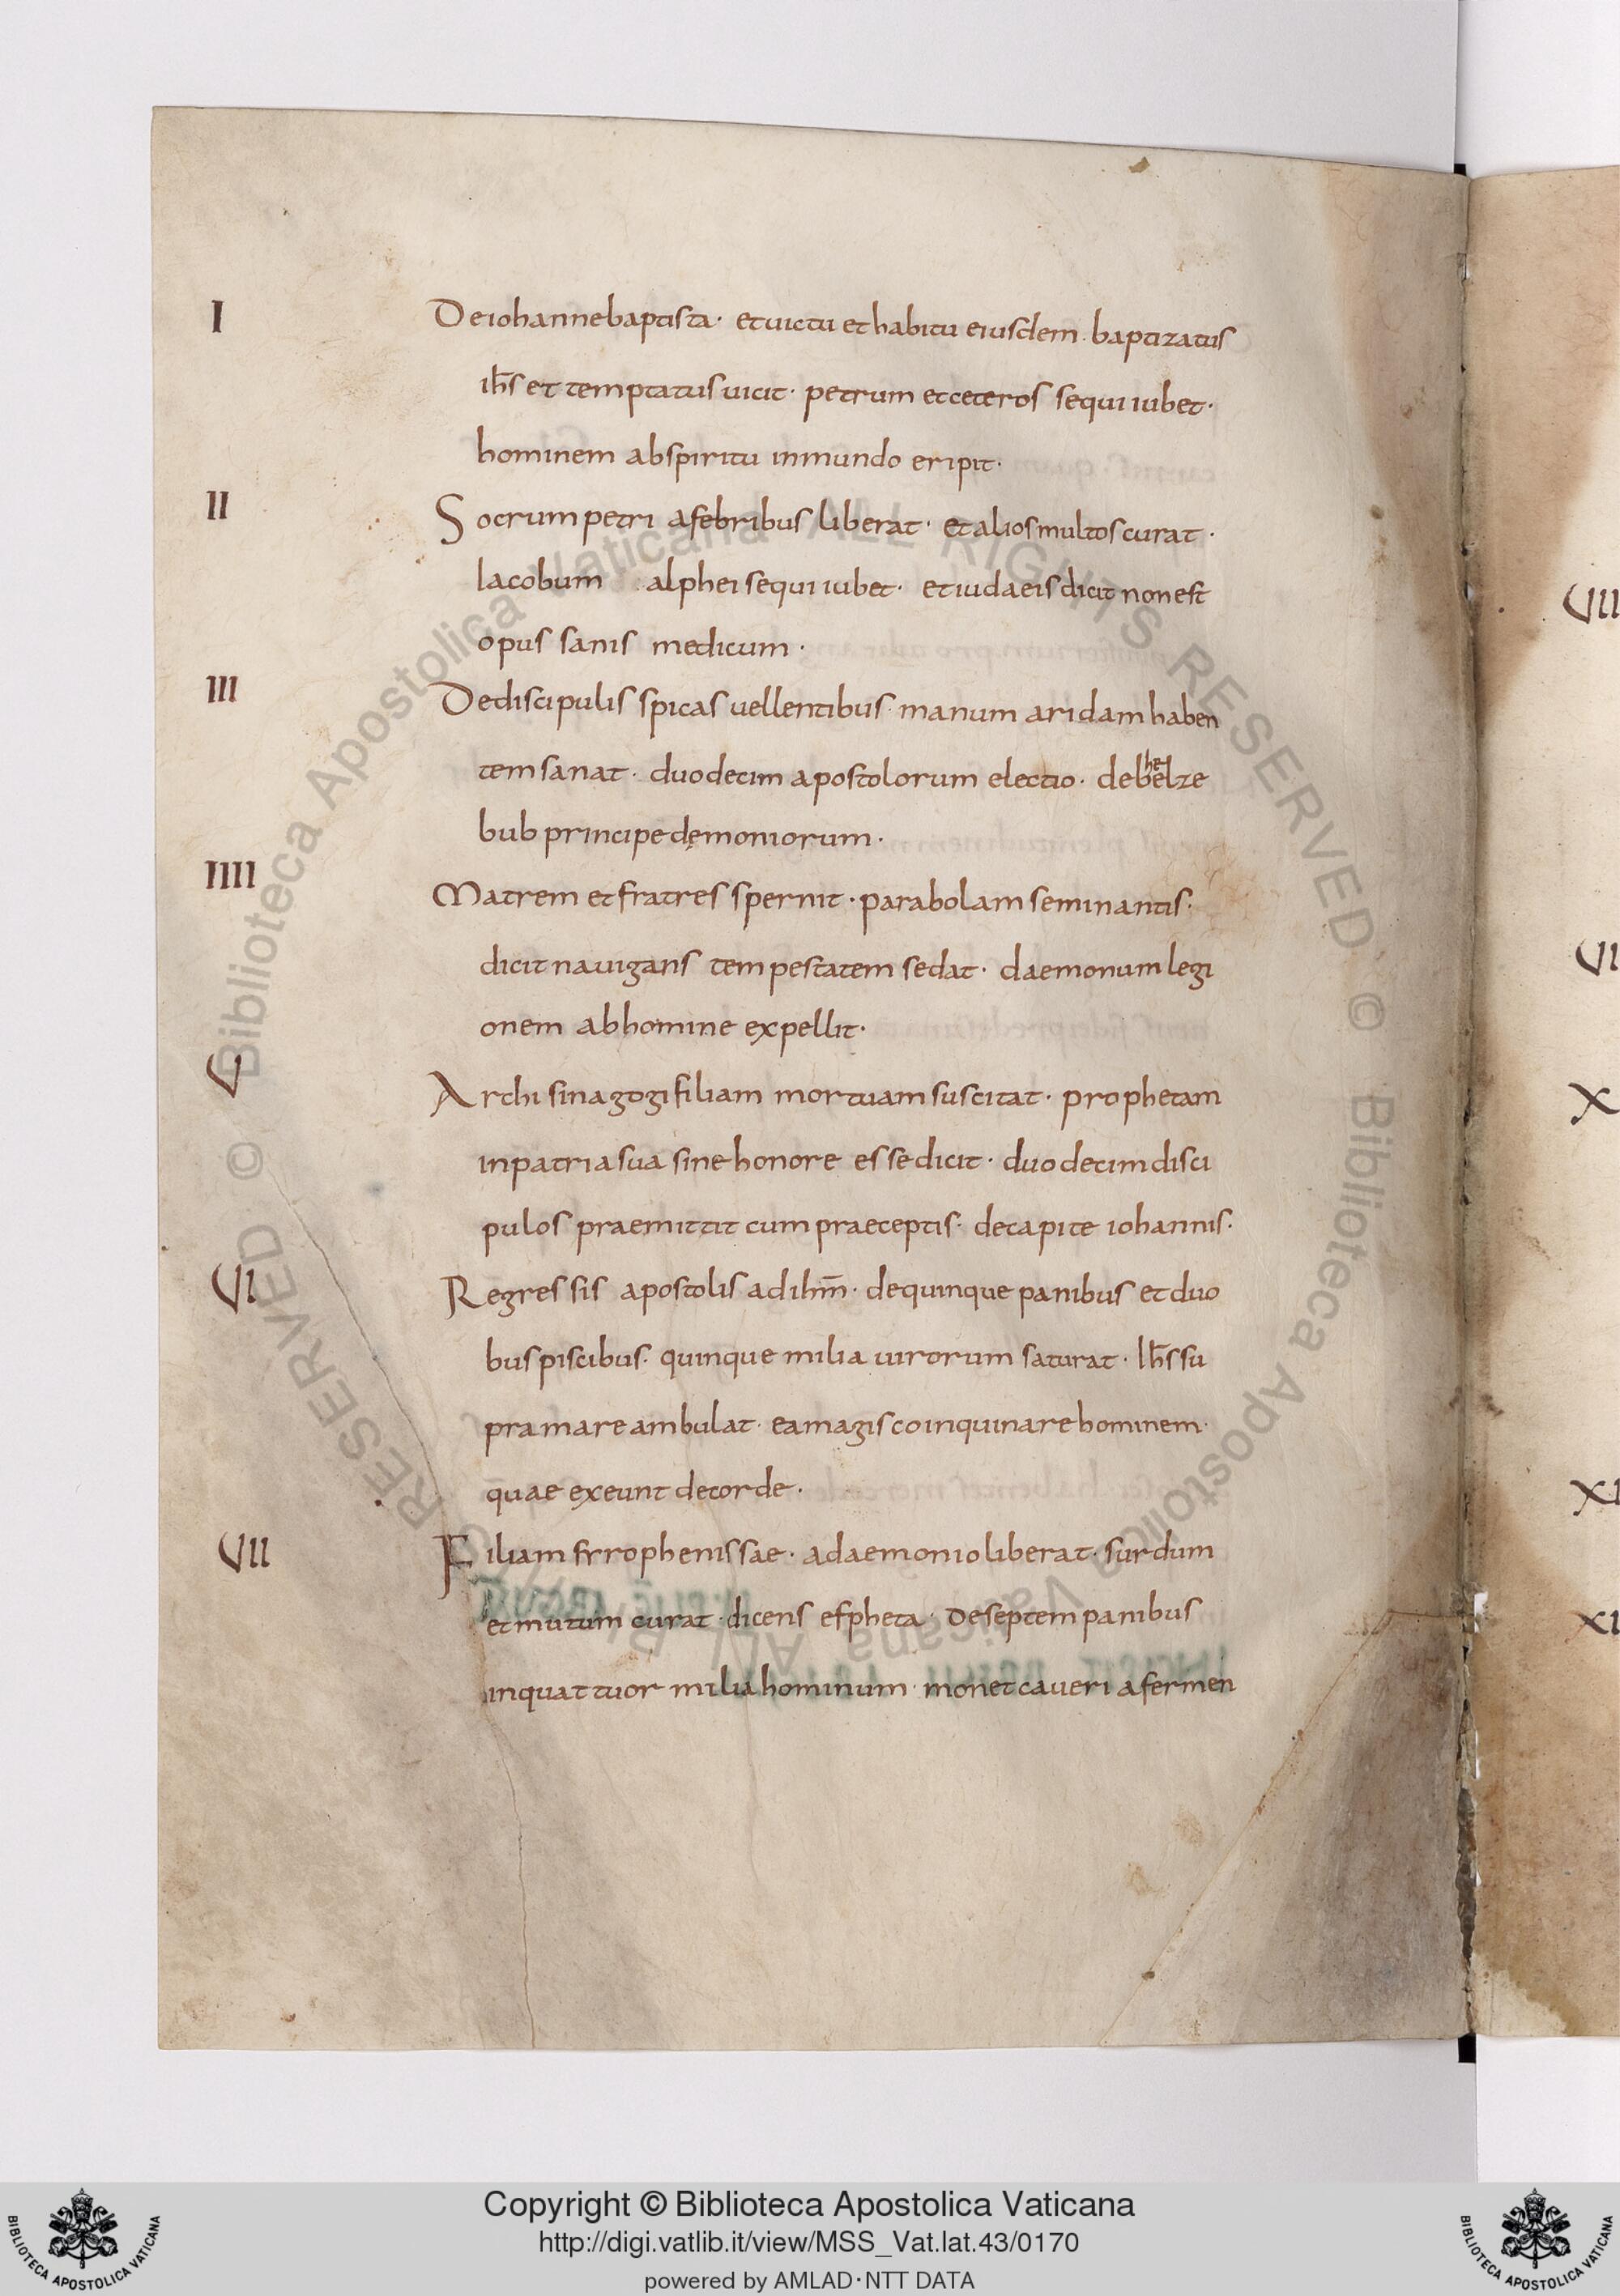 I Deiohannebaptista· etuictu et habitu eiusdem· baptizatus
ih̄s et temptatus uicit· petrum et ceteros sequi iubet·
hominem abspiritu inmundo eripit·
II Socrum petri afebribus liberat· et alios multos curat·
Iacobum alphei sequi iubet· et iudaeis dicit non est
opus sanis medicum·
III Dediscipulis spicas uellentibus· manum aridam haben
tem sanat· duodecim apostolorum electio· debheelze
bub principe dęmoniorum·
IIII Matrem et fratres spernit· parabolam seminantis·
dicit nauigans tempestatem sedat· daemonum legi
onem abhomine expellit·
V Archisinagogi filiam mortuam suscitat· prophetam
inpatria sua sine honore esse dicit· duodecim disci
pulos praemittit cum praeceptis· decapite iohannis·
VI Regressis apostolis ad ihm̄· dequinque panibus et duo
bus piscibus· quinque milia uirorum saturat· Ih̄s su
pra mare ambulat· ea magis coinquinare hominem·
q̄uae exeunt decorde·
VII Filiam syrophenissae· adaemonio liberat· surdum
et mutum curat· dicens efpheta· De septem panibus
inquattuor milia hominum· monet caueri afermen
VII
VI
X
XI
XI
Biblioteca Apostolica Vaticana ALL RIGHTS RESERVED ©
Biblioteca Apostolica Vaticana ALL RIGHTS RESERVED ©
Copyright © Biblioteca Apostolica Vaticana
http://digi.vatlib.it/view/MSS_Vat.lat.43/0170
powered by AMLAD·NTT DATA
BIBLIOTECA APOSTOLICA VATICANA
BIBLIOTECA APOSTOLICA VATICANA